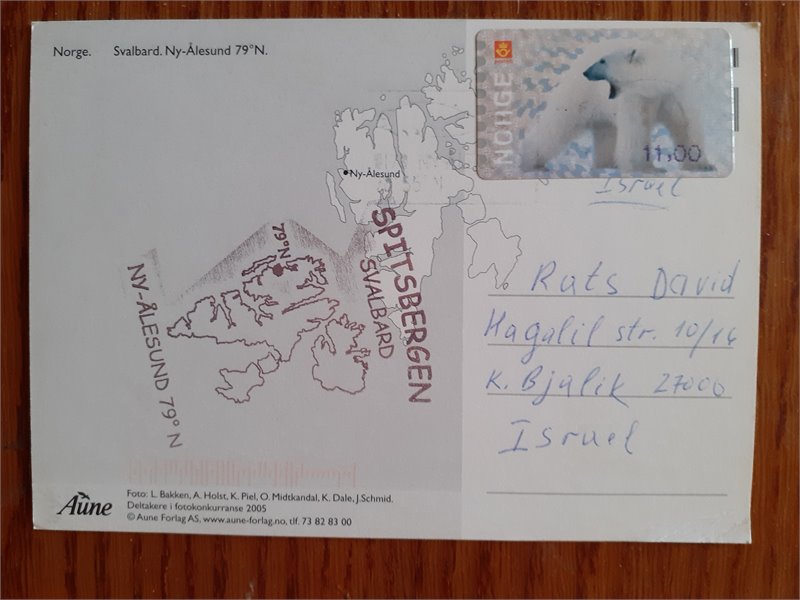 Norge. Svalbard. Ny-Ålesund 79°N.
NORGE
11,00
Ny-Ålesund
Israel
79°N
SPITSBERGEN
SVALBARD
NY-ÅLESUND 79° N
Rats David
Hagalil str. 10/14
K. Bjalik 27000
Israel
Aune
Foto: L. Bakken, A. Holst, K. Piel, O. Midtkandal, K. Dale, J.Schmid.
Deltakere i fotokonkurranse 2005
© Aune Forlag AS, www.aune-forlag.no, tlf. 73 82 83 00